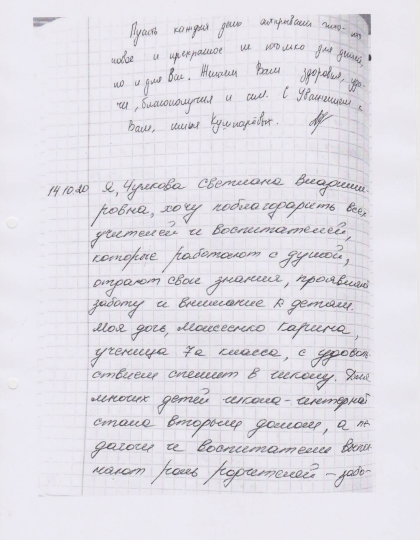 Пусть каждый день открывает что-то
новое и прекрасное не только для детей,
но и для Вас. Желаем Вам здоровья, уда-
чи, благополучия и сил. С Уважением к
Вам, семья
14.10.20 Я, Чулкова Светлана Владими-
ровна, хочу поблагодарить всех
учителей и воспитателей,
которые работают с душой,
отдают свои знания, проявляют
заботу и внимание к детям.
Моя дочь, Моисеенко Карина,
ученица 7а класса, с удоволь
ствием спешит в школу. Для
многих детей школа-интернат
стала вторым домом, а пе
дагоги и воспитатели выпол
няют роль родителей - забо-